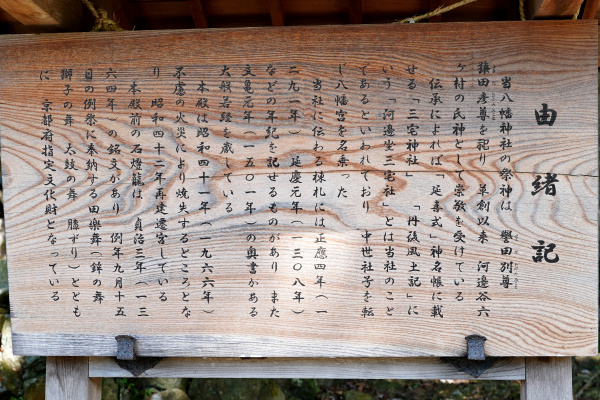 由緒記
当八幡神社の祭神は 譽田別尊
猿田彦尊を祀り 草創以来 河邊谷六
ヶ村の氏神として崇敬を受けている
伝承によれば「延喜式」神名帳に載
せる「三宅神社」 「丹後風土記」に
いう「河邊坐三宅社」とは当社のこと
であるといわれており 中世社子を転
じ八幡宮を名乗った
当社に伝わる棟札には正應四年(一
二九一年) 延慶元年(一三〇八年)
などの年紀を記せるものがあり また
文亀元年(一五〇一年)の奥書がある
大般若経を蔵している
本殿は昭和四十一年(一九六六年)
不慮の火災により焼失するところとな
り 昭和四十二年再建遷宮している
本殿前の石燈籠は 貞治三年(一三
六四年)の銘文があり 例年九月十五
日の例祭に奉納する田楽舞(鉾の舞
獅子の舞 太鼓の舞 膝ずり)ととも
に 京都府指定文化財となっている